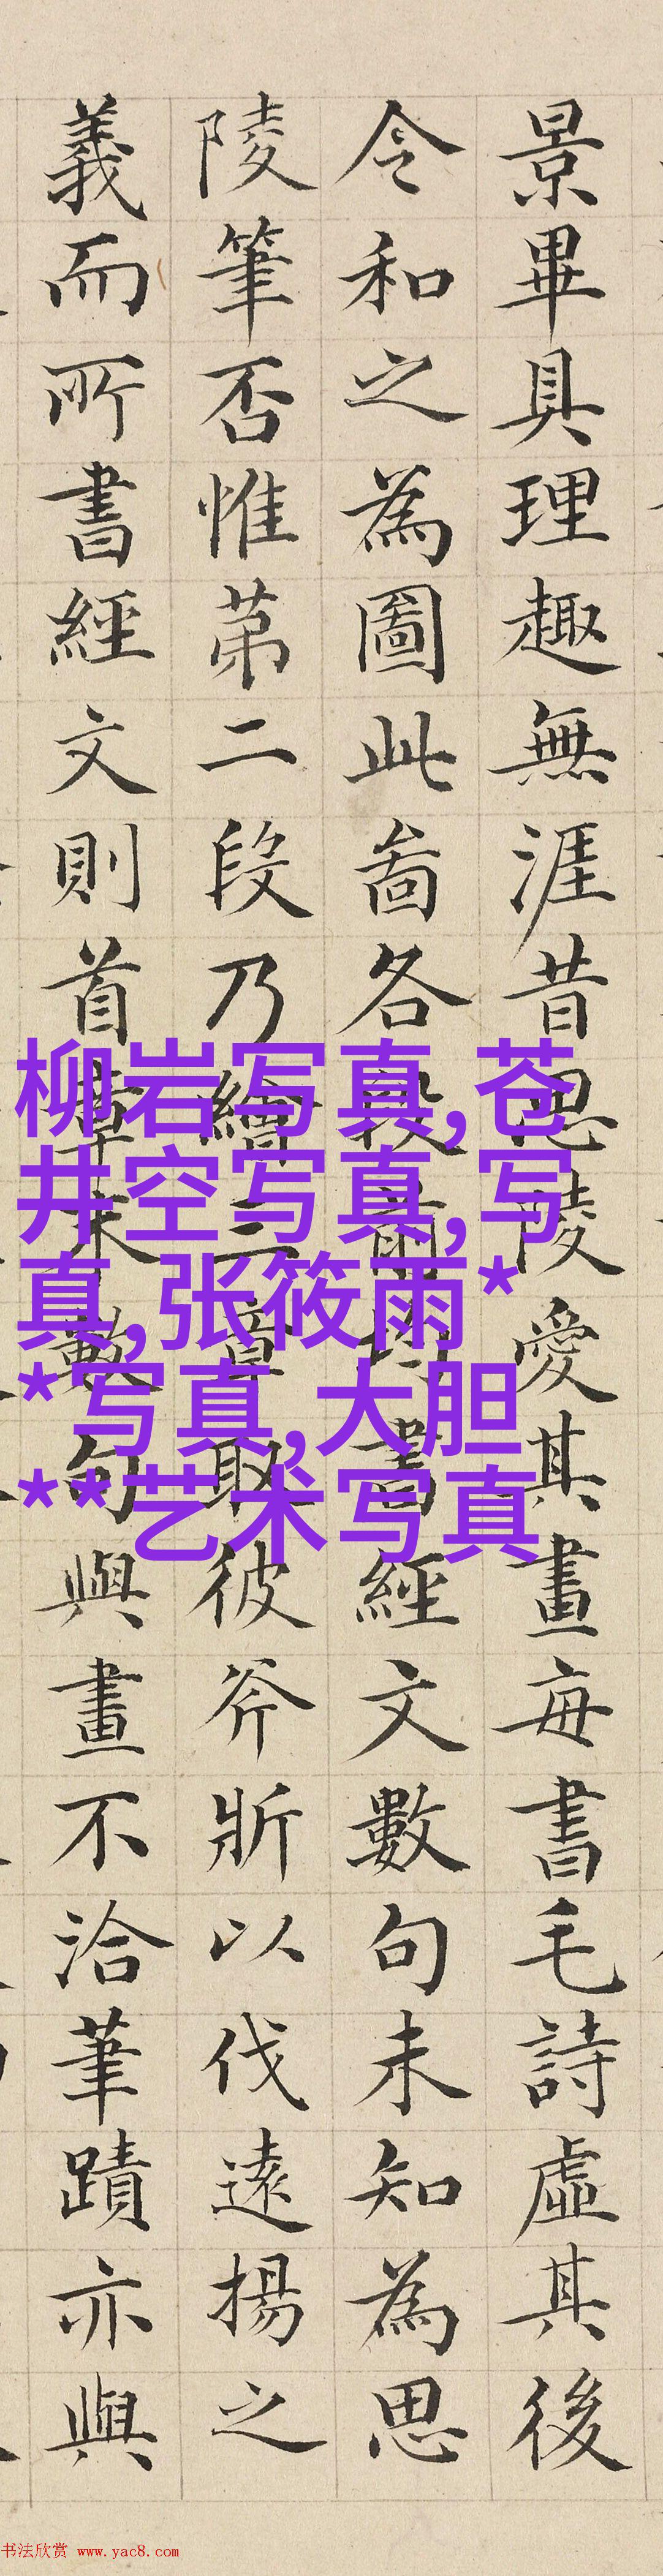 景畢具理趣無涯昔思陵愛其畫每書毛詩虛其後
令和之為圖此啚各段前均書經文數句未知為思
陵筆否惟苐二段乃繪三章取彼斧斨以伐遠揚之
義而所書經文則首章末數句與畫不洽筆蹟亦與
柳岩写真,苍
井空写真,写
真,张筱雨*
*写真,大胆
**艺术写真
书法欣赏 www.yac8.com